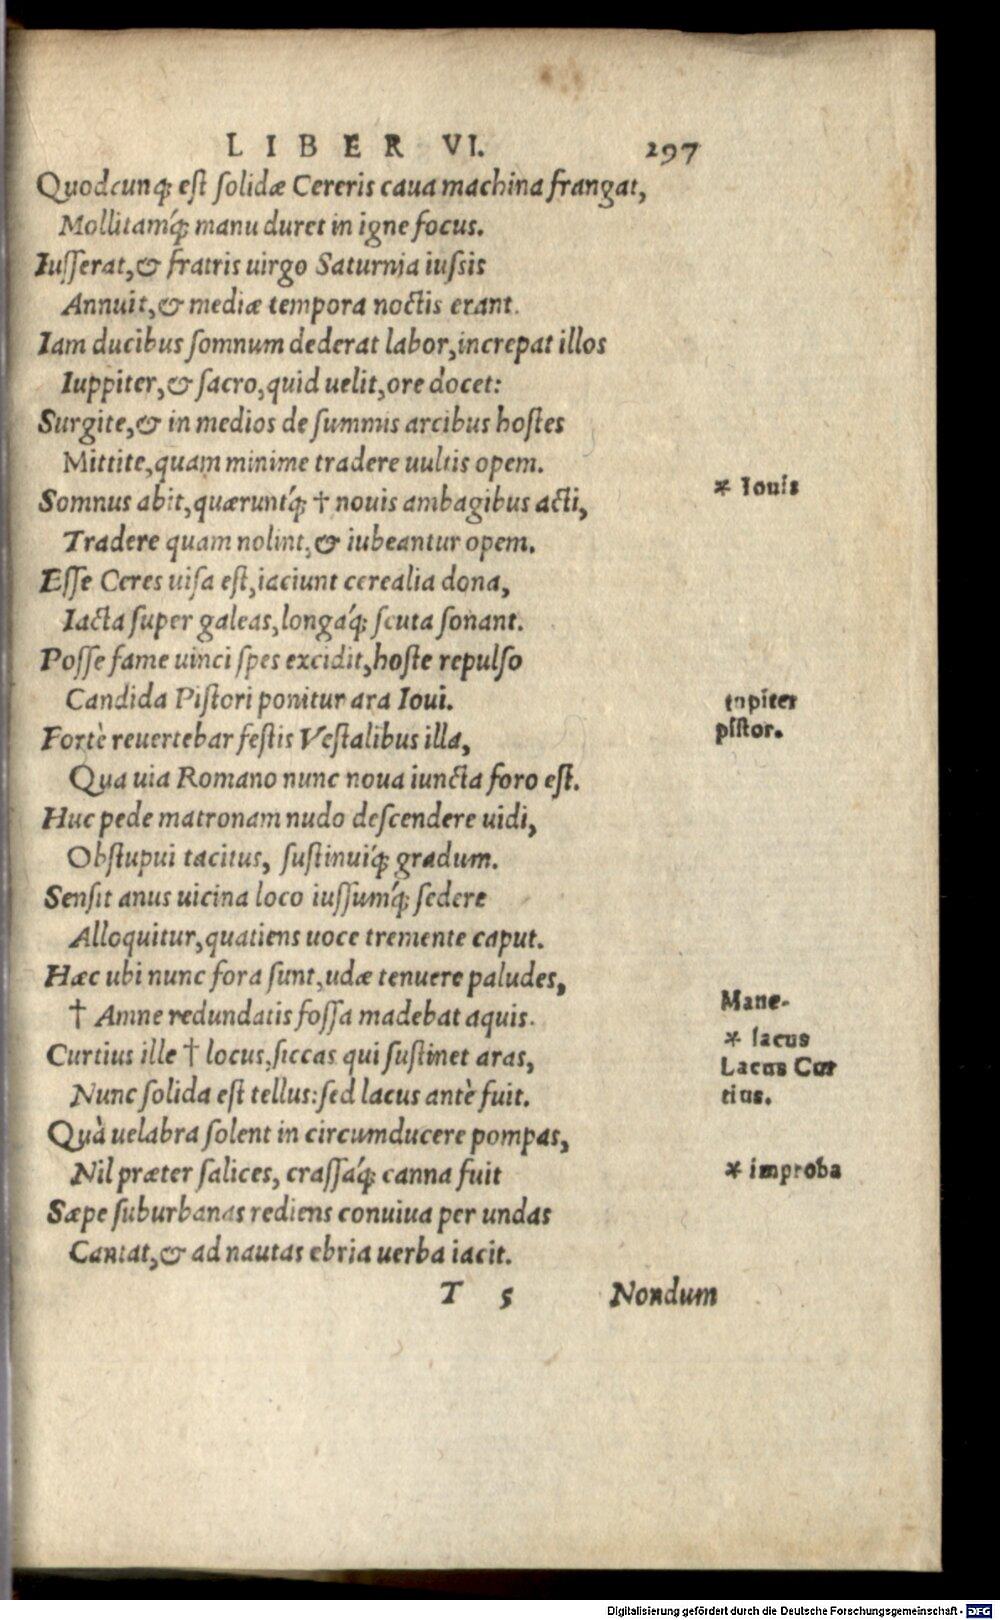 LIBER VI. 297
Quodcunq; est solidæ Cereris caua machina frangat,
Mollitamq́; manu duret in igne focus.
Iusserat,& fratris uirgo Saturnia iussis
Annuit,& mediæ tempora noctis erant.
Iam ducibus somnum dederat labor,increpat illos
Iuppiter,& sacro,quid uelit,ore docet:
Surgite,& in medios de summis arcibus hostes
Mittite,quam minime tradere uultis opem.
* Iouis
Somnus abit,quæruntq́; † nouis ambagibus acti,
Tradere quam nolint,& iubeantur opem.
Esse Ceres uisa est,iaciunt cerealia dona,
Iacta super galeas,longaq́; scuta sonant.
Posse fame uinci spes excidit,hoste repulso
Candida Pistori ponitur ara Ioui.
Iupiter
pistor.
Fortè reuertebar festis Vestalibus illa,
Qua uia Romano nunc noua iuncta foro est.
Huc pede matronam nudo descendere uidi,
Obstupui tacitus, sustinuiq́; gradum.
Sensit anus uicina loco iussumq́; sedere
Alloquitur,quatiens uoce tremente caput.
Hæc ubi nunc fora sunt,udæ tenuere paludes,
Mane-
† Amne redundatis fossa madebat aquis.
* lacus
Curtius ille † locus,siccas qui sustinet aras,
Lacus Cur
Nunc solida est tellus:sed lacus antè fuit.
tius.
Quà uelabra solent in circum ducere pompas,
Nil præter salices, crassaq́; canna fuit
* improba
Sæpe suburbanas rediens conuiua per undas
Cantat,& ad nautas ebria uerba iacit.
T 5 Nondum
Digitalisierung gefördert durch die Deutsche Forschungsgemeinschaft - DFG